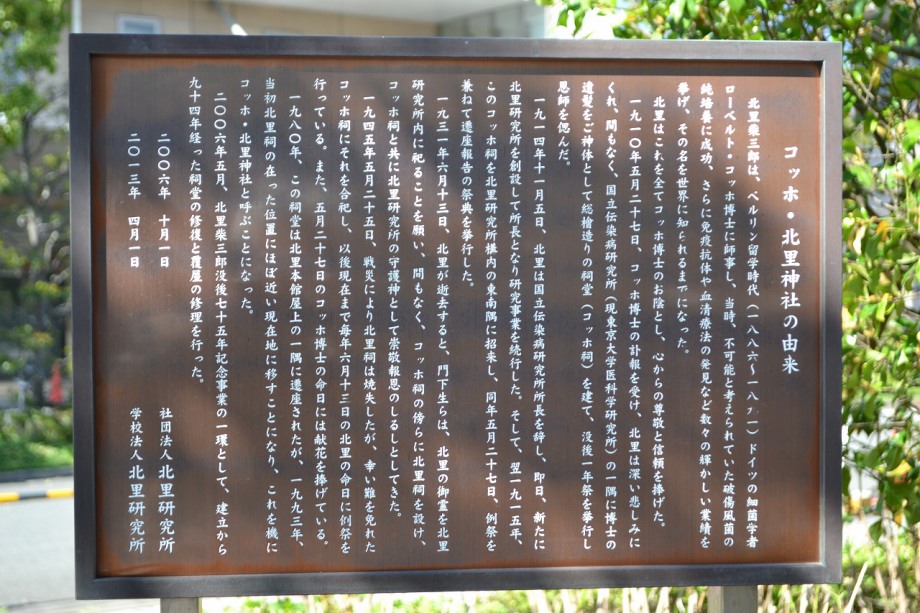 コッホ・北里神社の由来
北里柴三郎は、ベルリン留学時代（一八八六〜一八九一）ドイツの細菌学者
ローベルト・コッホ博士に師事し、当時、不可能と考えられていた破傷風菌の
純培養に成功、さらに免疫抗体や血清療法の発見など数々の輝かしい業績を
挙げ、その名を世界に知られるまでになった。
北里はこれを全てコッホ博士のお陰とし、心からの尊敬と信頼を捧げた。
一九一〇年五月二十七日、コッホ博士の訃報を受け、北里は深い悲しみに
くれ、間もなく、国立伝染病研究所（現東京大学医科学研究所）の一隅に博士の
遺髪をご神体として総檜造りの祠堂（コッホ祠）を建て、没後一年祭を挙行し
恩師を偲んだ。
一九一四年十一月五日、北里は国立伝染病研究所所長を辞し、即日、新たに
北里研究所を創設して所長となり研究事業を続行した。そして、翌一九一五年、
このコッホ祠を北里研究所構内の東南隅に招来し、同年五月二十七日、例祭を
兼ねて遷座報告の祭典を挙行した。
一九三一年六月十三日、北里が逝去すると、門下生らは、北里の御霊を北里
研究所内に祀ることを願い、間もなく、コッホ祠の傍らに北里祠を設け、
コッホ祠と共に北里研究所の守護神として崇敬報恩のしるしとしてきた。
一九四五年五月二十五日、戦災により北里祠は焼失したが、幸い難を免れた
コッホ祠にそれを合祀し、以後現在まで毎年六月十三日の北里の命日に例祭を
行っている。また、五月二十七日のコッホ博士の命日には献花を捧げている。
一九八〇年、この祠堂は北里本館屋上の一隅に遷座されたが、一九九三年、
当初北里祠の在った位置にほぼ近い現在地に移すことになり、これを機に
コッホ・北里神社と呼ぶことになった。
二〇〇六年五月、北里柴三郎没後七十五年記念事業の一環として、建立から
九十四年経った祠堂の修復と覆屋の修理を行った。
二〇〇六年　十月一日　社団法人北里研究所
二〇一三年　四月一日　学校法人北里研究所